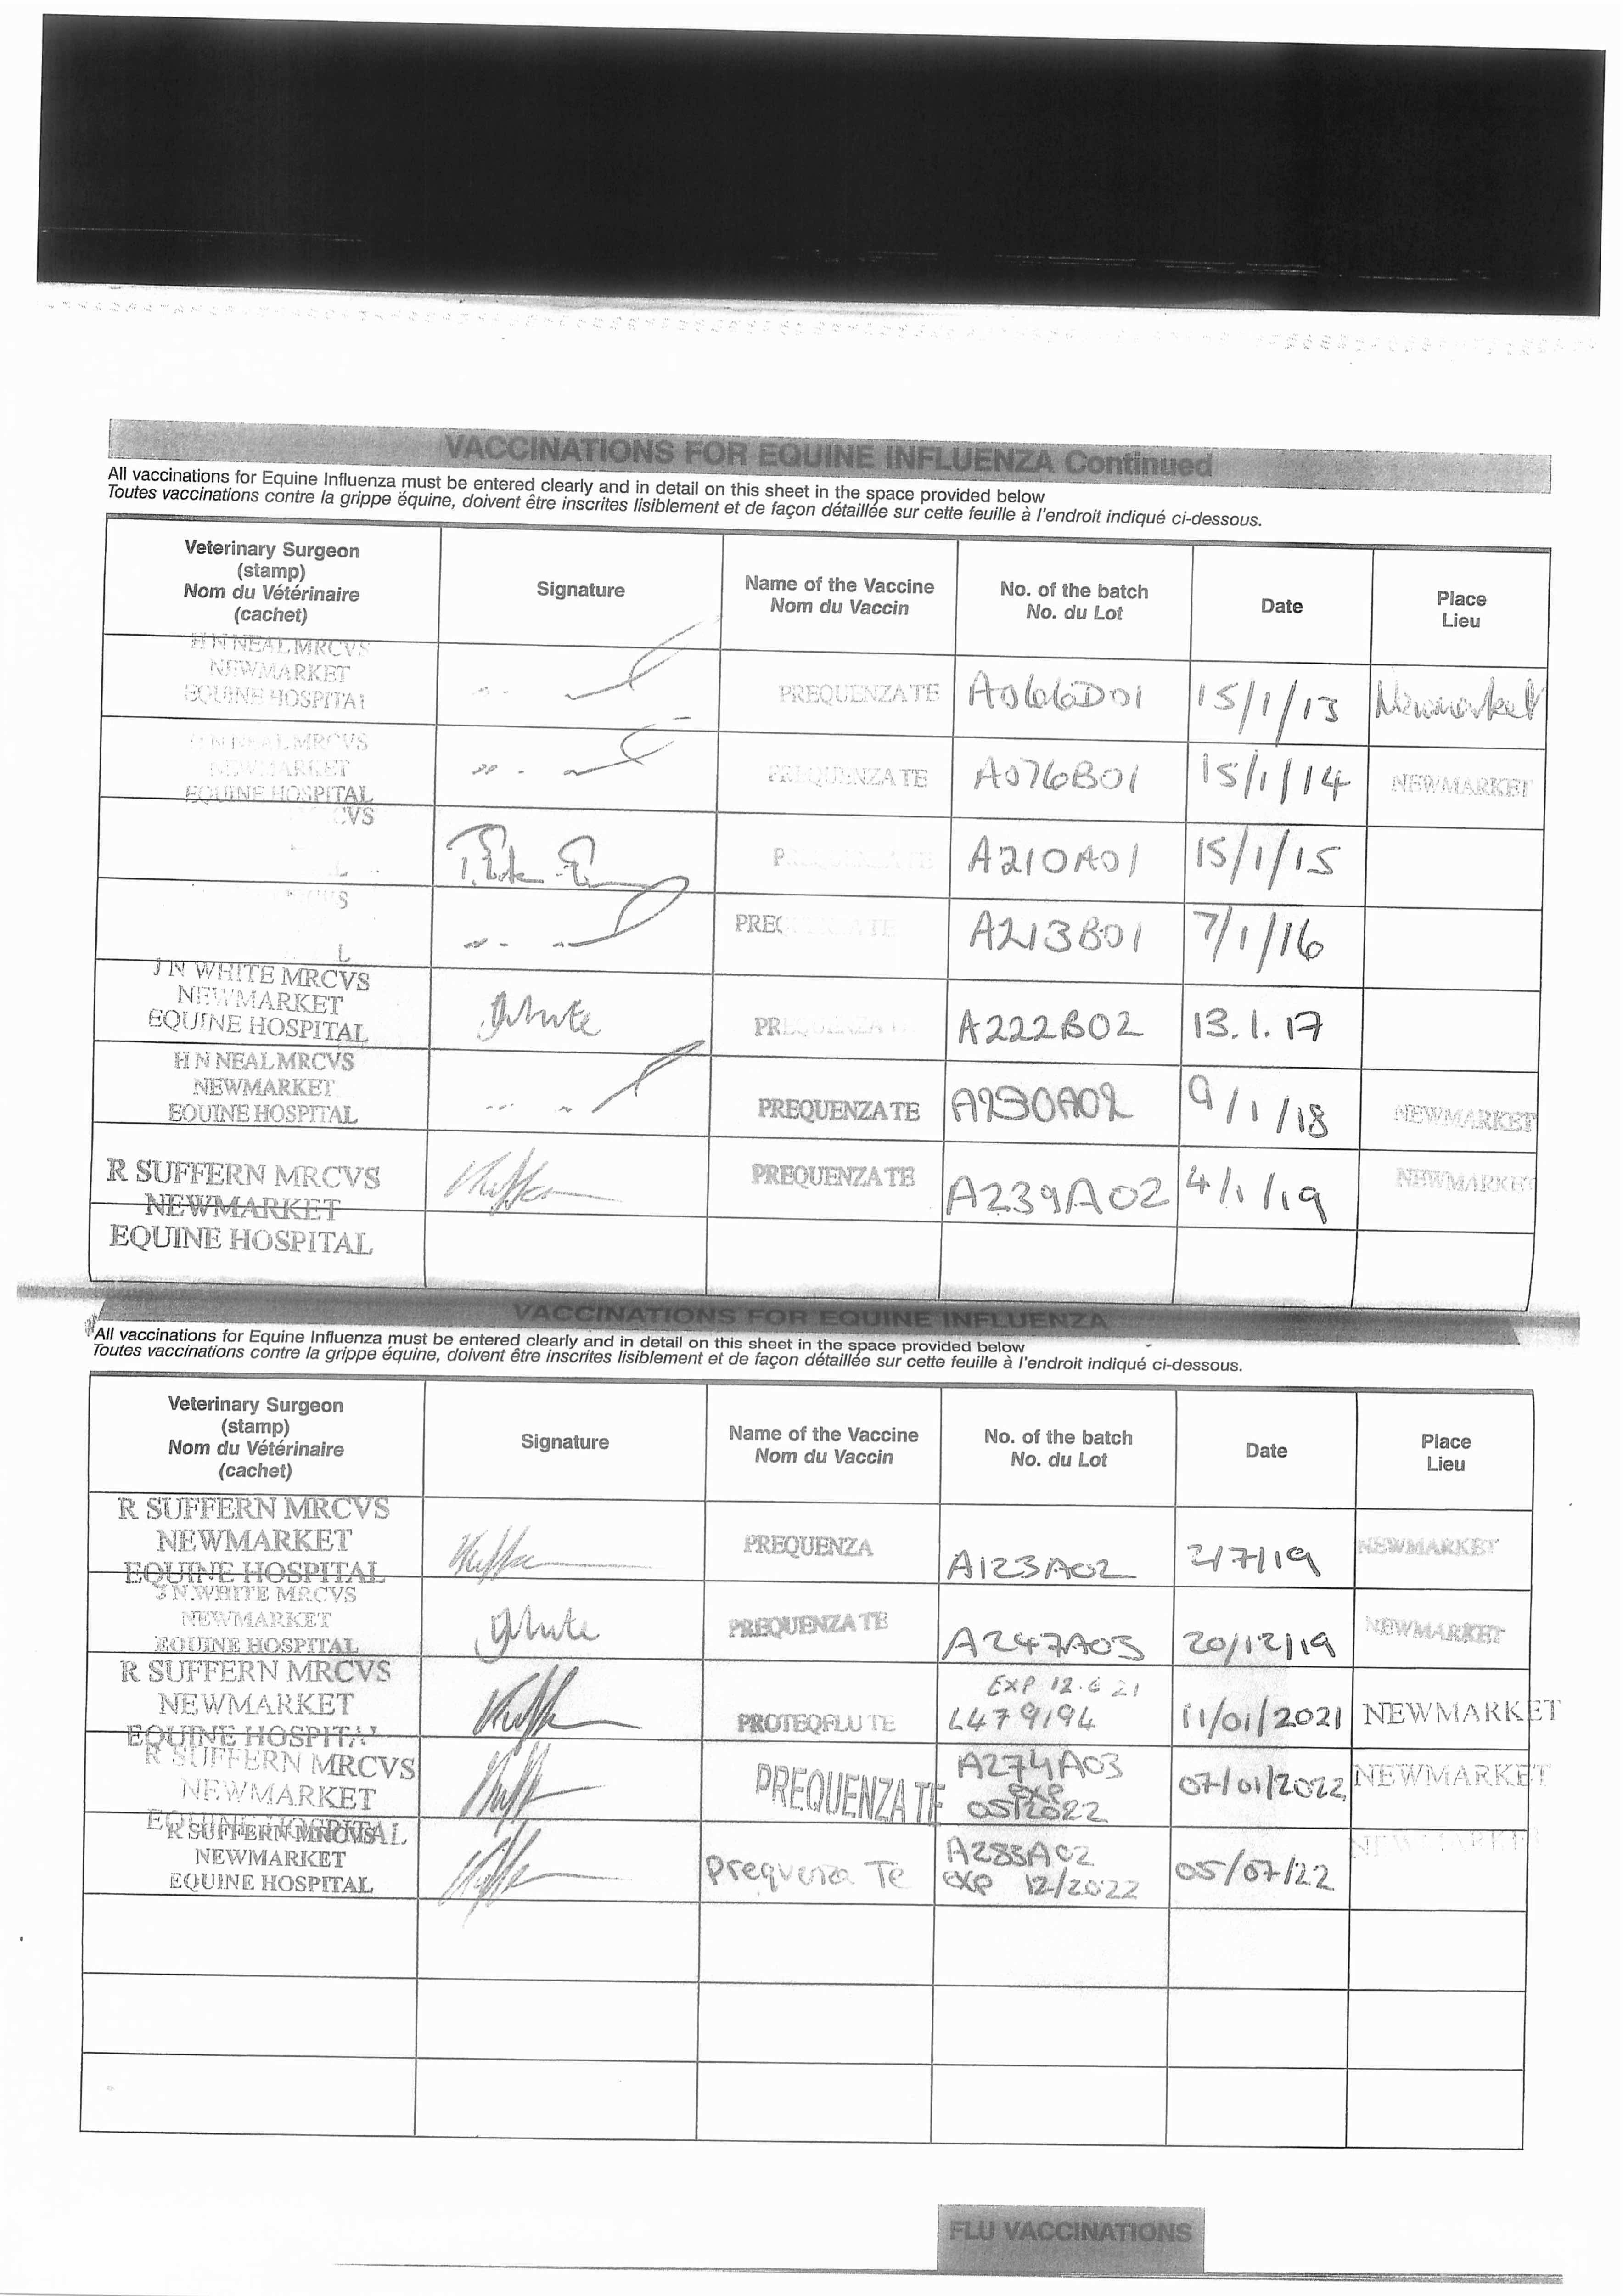 VACCINATIONS FOR EQUINE INFLUENZA Continued
All vaccinations for Equine Influenza must be entered clearly and in detail on this sheet in the space provided below
Toutes vaccinations contre la grippe équine, doivent être inscrites lisiblement et de façon détaillée sur cette feuille à l'endroit indiqué ci-dessous.
Veterinary Surgeon
(stamp)
Nom du Vétérinaire
(cachet)
Signature
Name of the Vaccine
Nom du Vaccin
No. of the batch
No. du Lot
Date
Place
Lieu
H N NEAL MRCVS
NEWMARKET
EQUINE HOSPITAL
PREQUENZA TE
A066D01
15/1/13
Newmarket
H N NEAL MRCVS
NEWMARKET
EQUINE HOSPITAL
PREQUENZA TE
A076B01
15/1/14
NEWMARKET
CVS
L
A210A01
15/1/15
L
PREQ
A213B01
7/1/16
J N WHITE MRCVS
NEWMARKET
EQUINE HOSPITAL
White
PREQUENZA TE
A222B02
13.1.17
H N NEAL MRCVS
NEWMARKET
EQUINE HOSPITAL
PREQUENZA TE
A230A02
9/1/18
NEWMARKET
R SUFFERN MRCVS
NEWMARKET
EQUINE HOSPITAL
PREQUENZA TE
A239A02
4/1/19
NEWMARKET
VACCINATIONS FOR EQUINE INFLUENZA
All vaccinations for Equine Influenza must be entered clearly and in detail on this sheet in the space provided below
Toutes vaccinations contre la grippe équine, doivent être inscrites lisiblement et de façon détaillée sur cette feuille à l'endroit indiqué ci-dessous.
Veterinary Surgeon
(stamp)
Nom du Vétérinaire
(cachet)
Signature
Name of the Vaccine
Nom du Vaccin
No. of the batch
No. du Lot
Date
Place
Lieu
R SUFFERN MRCVS
NEWMARKET
EQUINE HOSPITAL
PREQUENZA
A123A02
2/7/19
NEWMARKET
J N WHITE MRCVS
NEWMARKET
EQUINE HOSPITAL
White
PREQUENZA TE
A247A03
20/12/19
NEWMARKET
R SUFFERN MRCVS
NEWMARKET
EQUINE HOSPITAL
PROTEQFLU TE
EXP 12.6 21
L479194
11/01/2021
NEWMARKET
R SUFFERN MRCVS
NEWMARKET
EQUINE HOSPITAL
PREQUENZA TE
A274A03
exp
05/2022
07/01/2022
NEWMARKET
R SUFFERN MRCVS
NEWMARKET
EQUINE HOSPITAL
Prequenza Te
A283A02
exp 12/2022
05/07/22
NEWMARKET
FLU VACCINATIONS